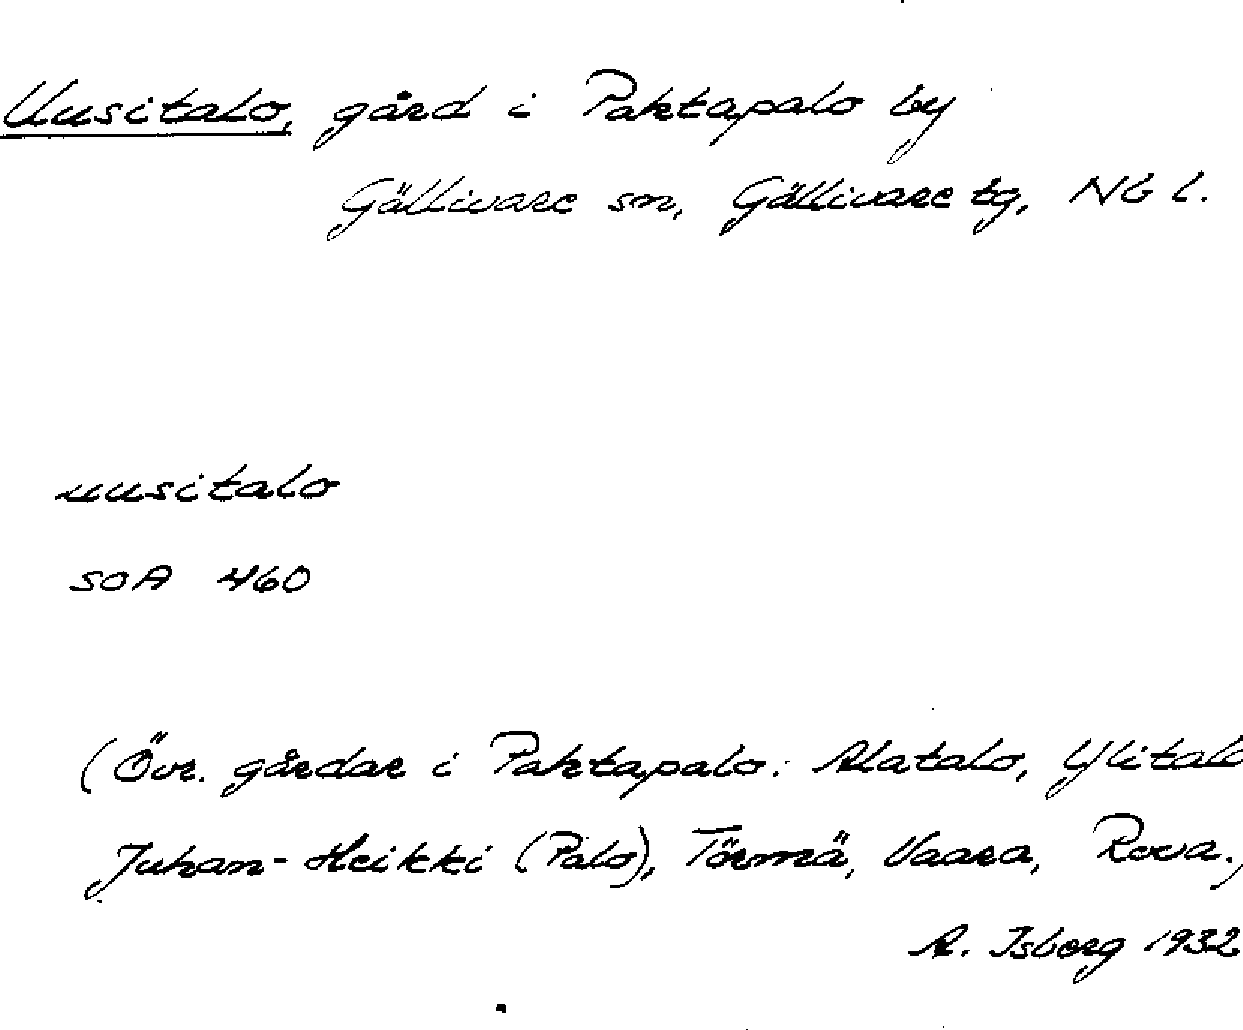 Uusitalo, gård i Paktapalo by
Gällivare sn, Gällivare tg, NB l.
uusitalo
SOA 460
(Övr. gårdar i Paktapalo: Alatalo, Ylitalo
Juhan-Heikki (Palo), Törmä, Vaara, Rova.)
A. Isberg 1932